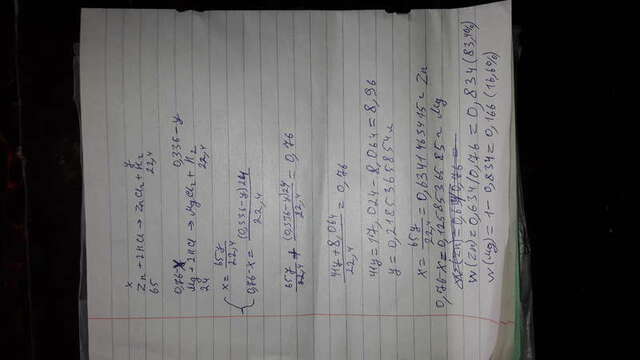 x y
Zn + 2HCl → ZnCl₂ + H₂
65 22,4
0,76-x 0,336-y
Mg + 2HCl → MgCl₂ + H₂
24 22,4
{ x = 65y/22,4
0,76-x = (0,336-y)24/22,4
65y/22,4 + (0,336-y)24/22,4 = 0,76
41y + 8,064/22,4 = 0,76
41y = 17,024 - 8,064 = 8,96
y = 0,2185365854 л
x = 65y/22,4 = 0,6341463415 г Zn
0,76-x = 0,1258536585 г Mg
W(Zn) = 0,634/0,76 = 0,834 (83,4%)
W(Mg) = 1 - 0,834 = 0,166 (16,6%)